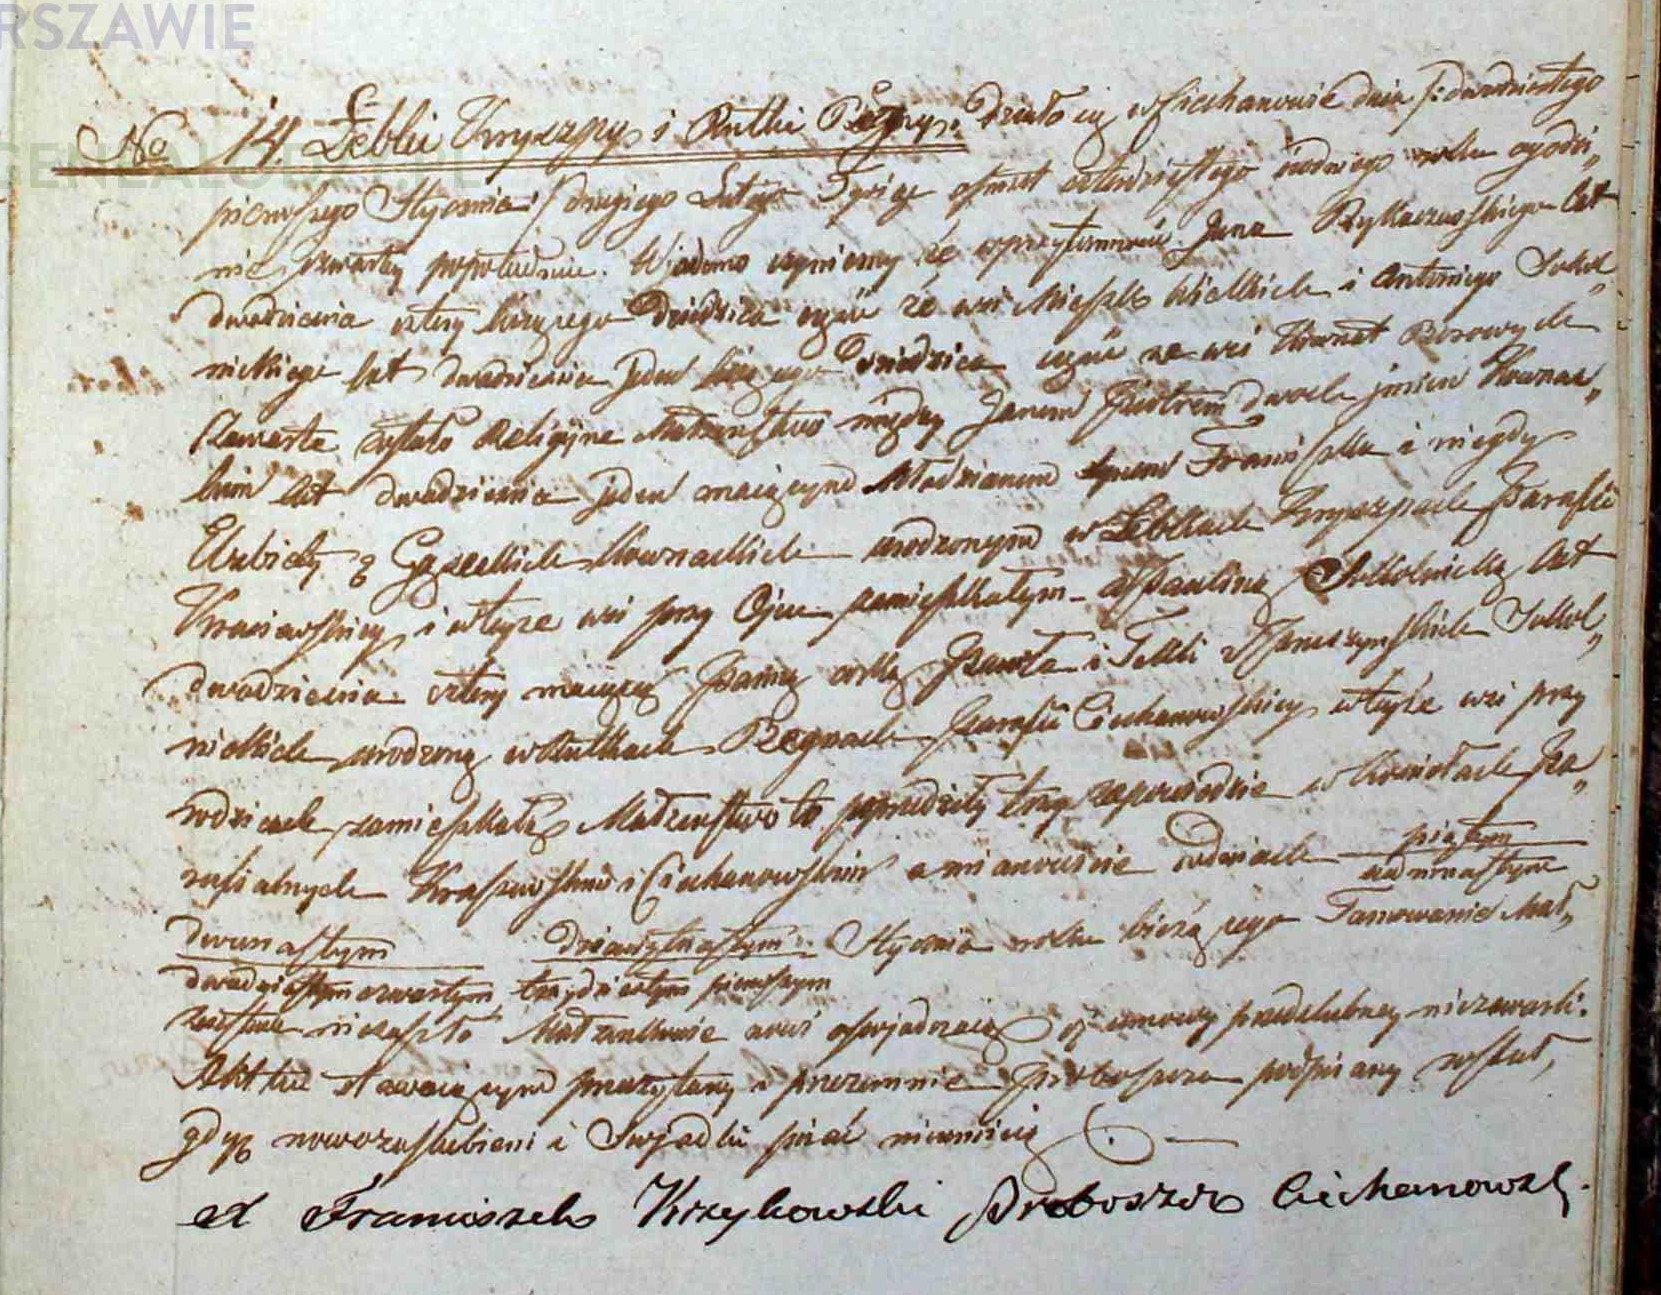 RSZAWIE
GENEALO
No 14. Łebki Kryszpy i Rutki Regny. Działo się w Ciechanowie dnia /: dwudziestego
pierwszego Stycznia / drugiego Lutego Tysiąc ośmset czterdziestego iednego roku o godzi„
nie czwartey popołudniu. Wjadomo czyniemy że w przytomności Jana Rykaczewskiego lat
dwadzieścia cztery liczącego Dziedzica części ze wsi Nieszk Wielkich i Antoniego Sokol„
nickiego lat dwadzieścia jeden liczącego Dziedzica części ze wsi Kownat Borowych
Zawarte zostało Religijne Małżeństwo między Janem Piotrem dwoch jmion Kownac„
kim lat dwadzieścia jeden maiącym Młodzianem synem Franciszka i niegdy
Elzbiety z Kownackich urodzonym w Łebkach Kryszpach Parafii
i w teyże wsi przy Ojcu zamieszkałym – a Pauliną Sokolnicką lat
dwadzieścia cztery maiącą Panną córką Pawła i Tekli z Sokol„
nickich urodzoną w Rutkach Regnach Parafii Ciechanowskiey w teyże wsi przy
rodzicach zamieszkałą Małżeństwo to poprzedziły trzy zapowiedzie w Kościołach Pa„
rafialnych i Ciechanowskim a mianowicie w dniach piątym
siedmnastym
dwunastym dziewiętnastym Stycznia roku bieżącego Tamowanie Mał„
dwudziestym czwartym, trzydziestym pierwszym
żeństwa nie zaszło Małżonkowie nowi oświadczaią iż umowy przedślubney nie zawarli.
Akt ten stawaiącym przeczytany i przezemnie Proboszcza podpisany został,
gdyż nowozaślubieni i Swjadki pisać nieumieią
X Franciszek Krzykowski Proboszcz Ciechanowski.